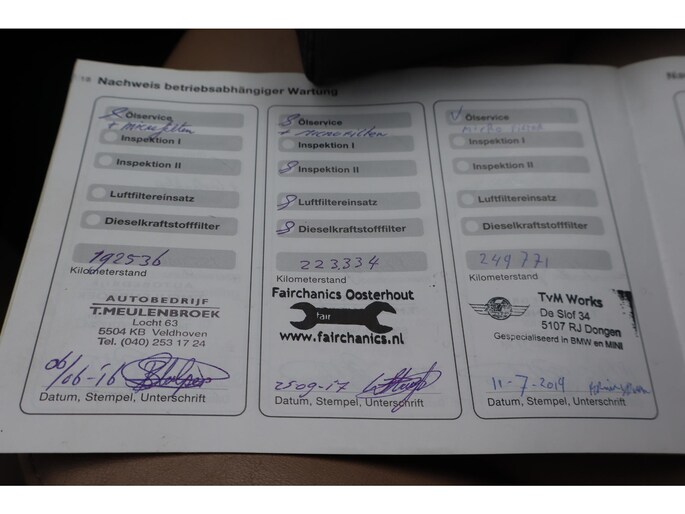 18 Nachweis betriebsabhängiger Wartung
Ölservice
+ microfilter
Inspektion I
Inspektion II
Luftfiltereinsatz
Dieselkraftstofffilter
192536
Kilometerstand
AUTOBEDRIJF
T.MEULENBROEK
Locht 63
5504 KB Veldhoven
Tel. (040) 253 17 24
06/06-16
Datum, Stempel, Unterschrift
Ölservice
+ microfilter
Inspektion I
Inspektion II
Luftfiltereinsatz
Dieselkraftstofffilter
223334
Kilometerstand
Fairchanics Oosterhout
fair
www.fairchanics.nl
25-09-17
Datum, Stempel, Unterschrift
Ölservice
Inspektion I
Inspektion II
Luftfiltereinsatz
Dieselkraftstofffilter
249771
Kilometerstand
TvM Works
De Slof 34
5107 RJ Dongen
Gespecialiseerd in BMW en MINI
11-7-2019
Datum, Stempel, Unterschrift